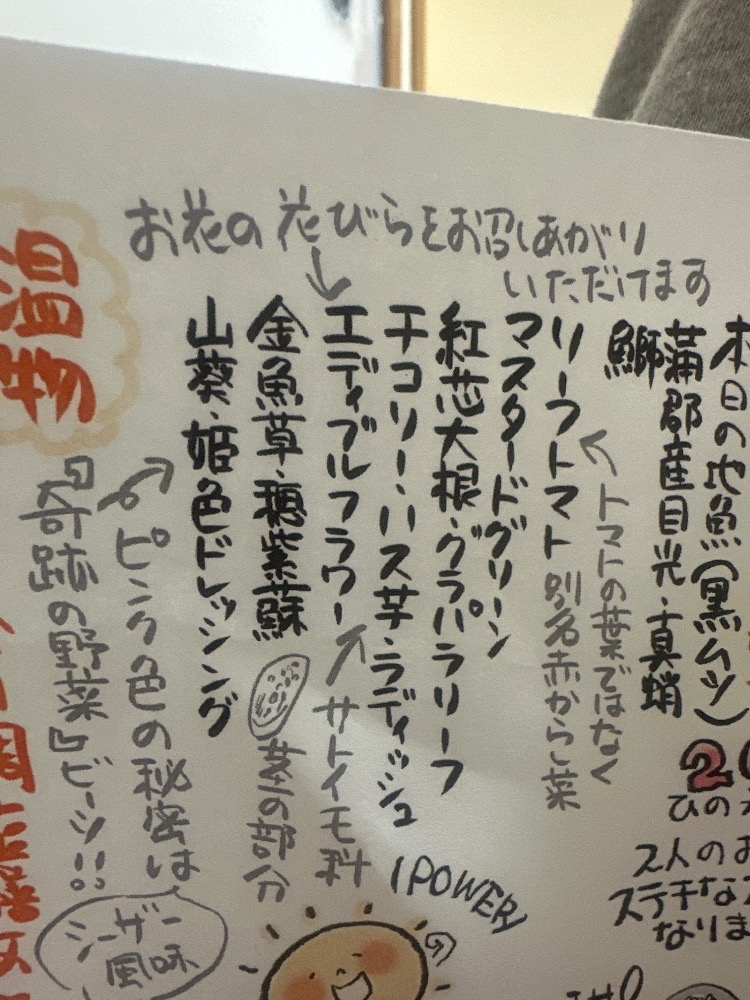 お花の花びらをお召しあがり
いただけます
本日の地魚(黒ムツ)
蒲郡産目光・真蛸
鰤
トマトの葉ではなく
リーフトマト 別名赤からし菜
マスタードグリーン
紅芯大根・グラパラリーフ
チコリー・ハス芋・ラディッシュ
エディブルフラワー
サトイモ科
茎の部分
金魚草・穂紫蘇
山葵・姫色ドレッシング
ピンク色の秘密は
『奇跡の野菜』ビーツ!!
シーザー
風味
温物
POWER
2
ひの
2人のお
ステキな
なりま